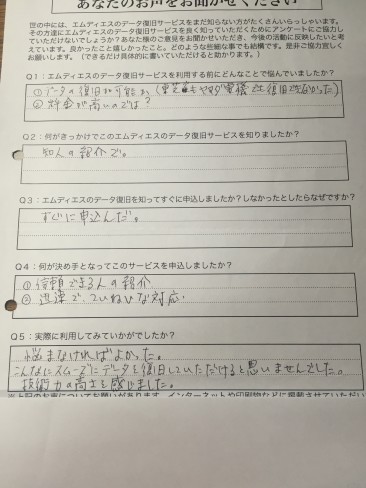 あなたのお声をお聞かせください
世の中には、エムディエスのデータ復旧サービスをまだ知らない方がたくさんいらっしゃいます。
その方達にエムディエスのデータ復旧サービスを良く知っていただくためにアンケートにご協力し
ていただけないでしょうか?あなた様のご意見をお聞かせいただき、今後の活動に反映したいと考
えています。良かったこと嬉しかったこと。どのような些細な事でも結構です。是非ご協力宜しく
お願いします。(できるだけ具体的に書いていただけると助かります。)
Q1:エムディエスのデータ復旧サービスを利用する前にどんなことで悩んでいましたか?
①データの復旧が可能か(東芝もヤマダ電機でも復旧できなかった)
②料金が高いのでは?
Q2:何がきっかけでこのエムディエスのデータ復旧サービスを知りましたか?
知人の紹介で。
Q3:エムディエスのデータ復旧を知ってすぐに申込しましたか?しなかったとしたらなぜですか?
すぐに申込んだ。
Q4:何が決め手となってこのサービスを申込しましたか?
①信頼できる人の紹介
②迅速で、ていねいな対応
Q5:実際に利用してみていかがでしたか?
悩まなければよかった。
こんなにスムーズにデータを復旧していただけると思いませんでした。
技術力の高さを感じました。